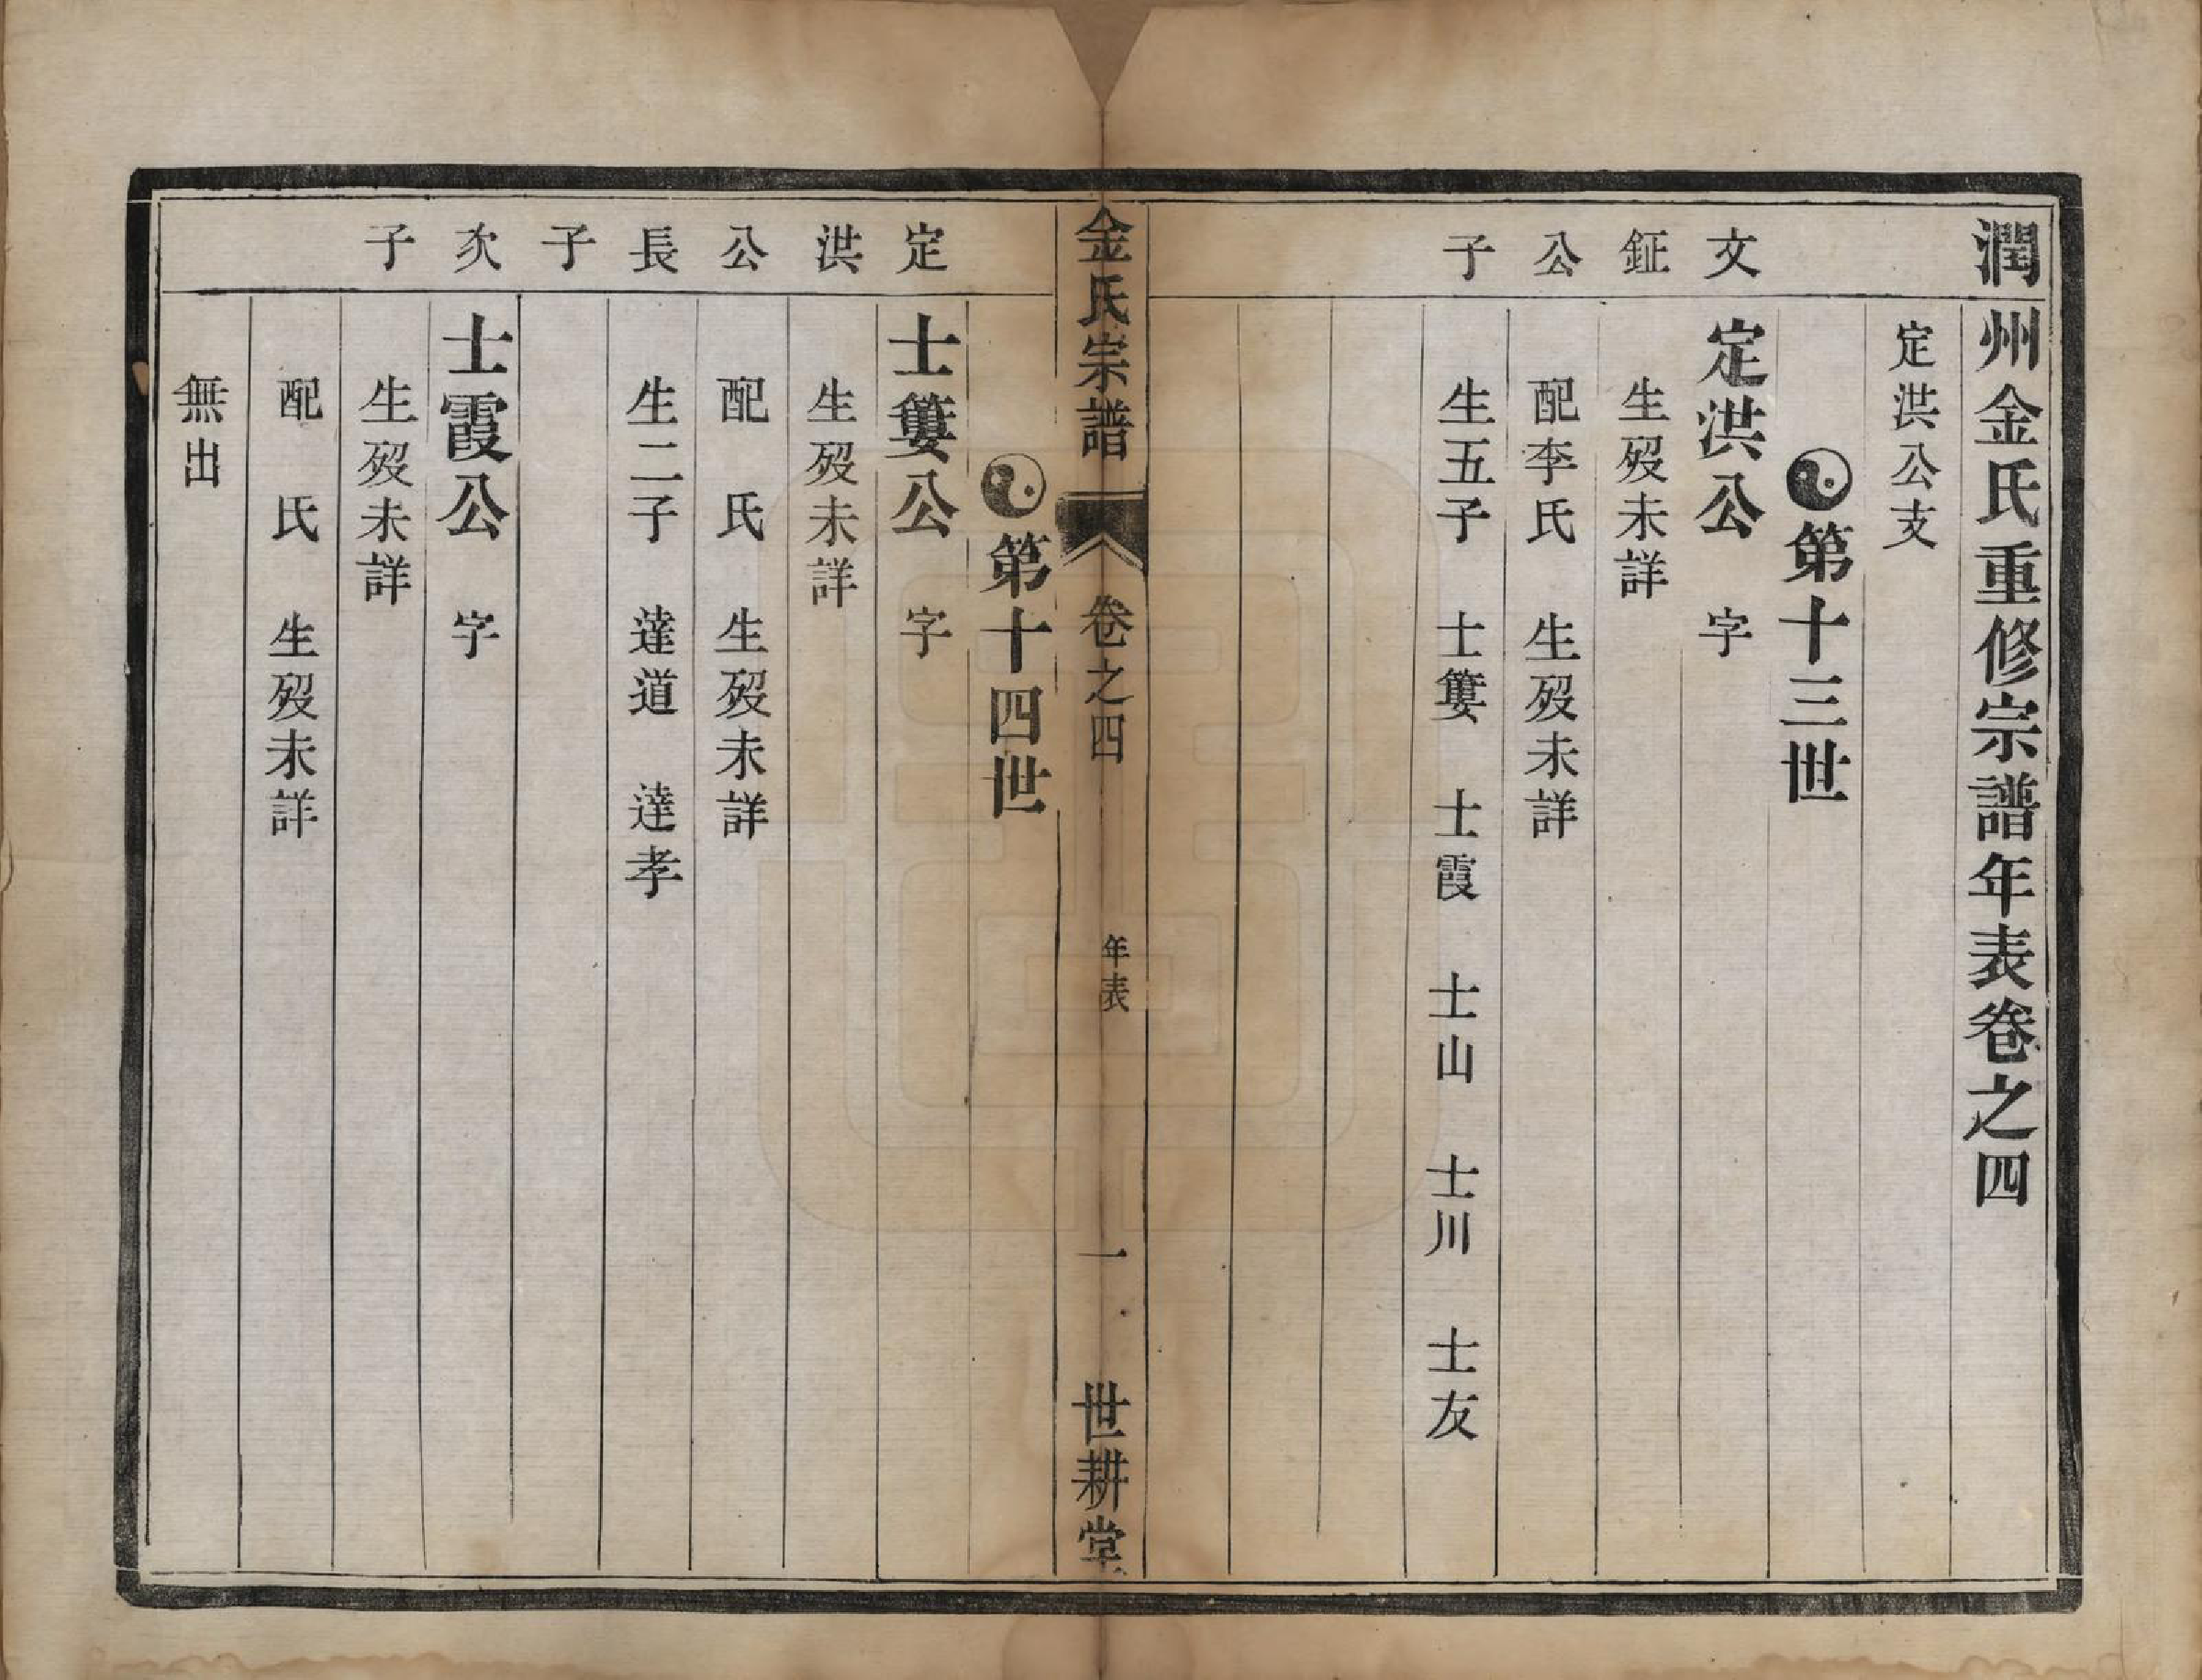 潤州金氏重修宗譜年表卷之四
定洪公支
第十三世
文鉦公子
定洪公　字
生歿未詳
配李氏　生歿未詳
生五子　士簍　士霞　士山　士川　士友
金氏宗譜　卷之四　年表　一　世耕堂
第十四世
定洪公長子
士簍公　字
生歿未詳
配　氏　生歿未詳
生二子　達道　達孝
次子
士霞公　字
生歿未詳
配　氏　生歿未詳
無出